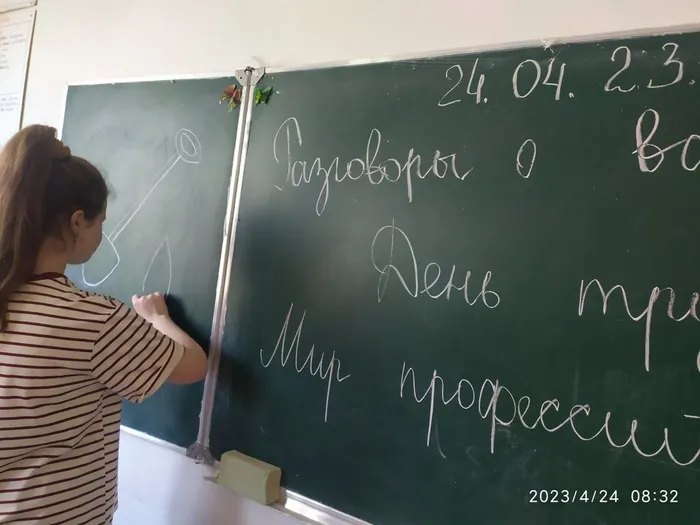 24. 04. 23.
Разговоры о ва
День тру
Мир профессий
2023/4/24 08:32